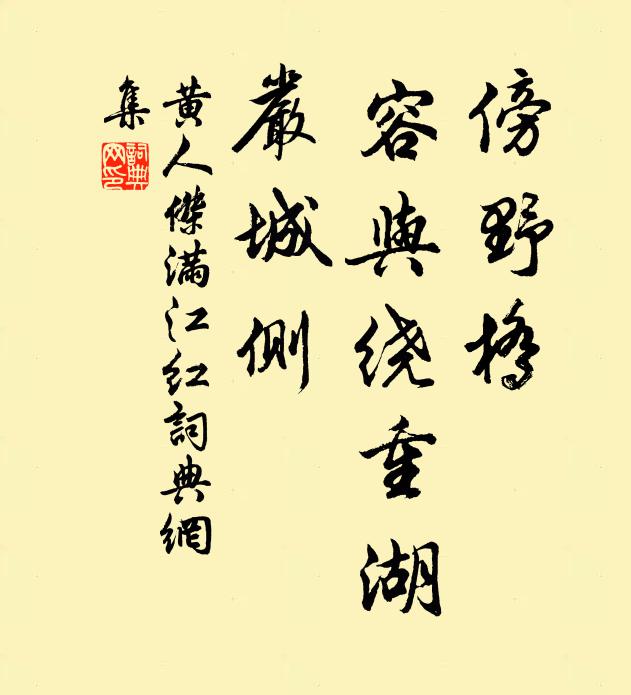 傍野橋
容與绕重湖
嚴城側
黄人傑滿江红詞典網
集
詞典
网印